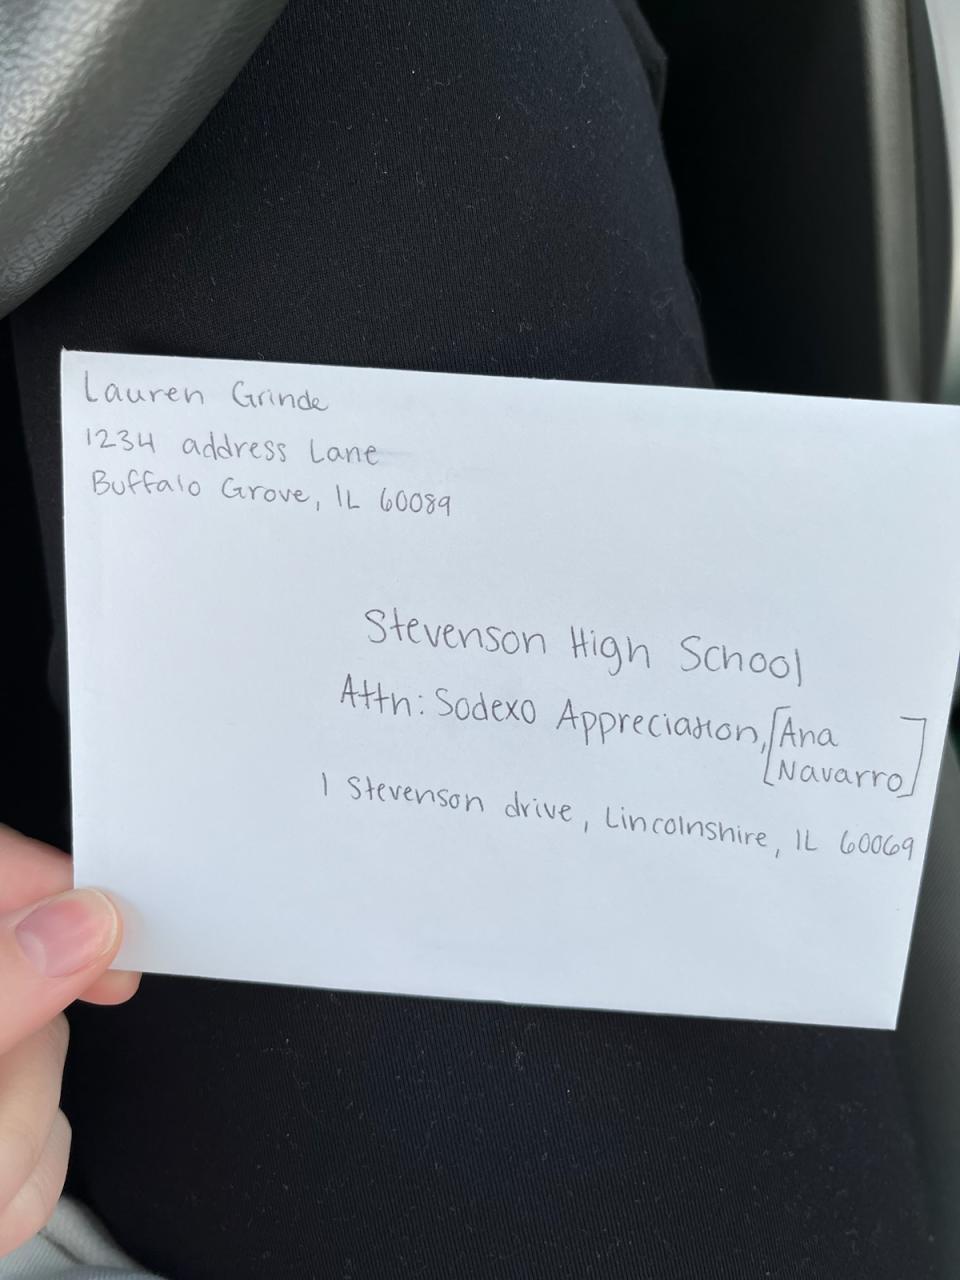 Lauren Grinde
1234 address Lane
Buffalo Grove, IL 60089
Stevenson High School
Attn: Sodexo Appreciation, [Ana
Navarro]
1 Stevenson drive, Lincolnshire, IL 60069